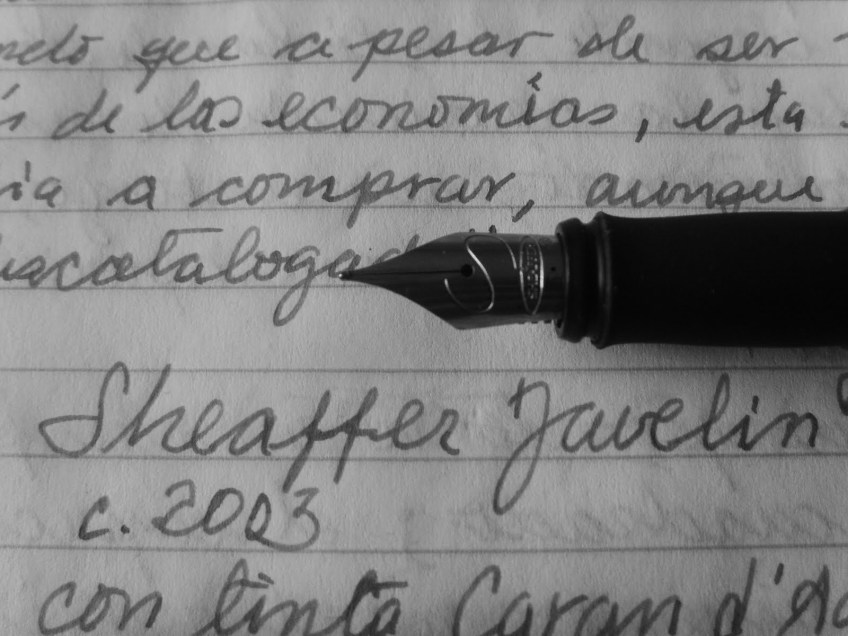 que a pesar de ser
de las economías, esta
a comprar, aunque
Sheaffer Javelin
c. 2003
con tinta Caran d'A